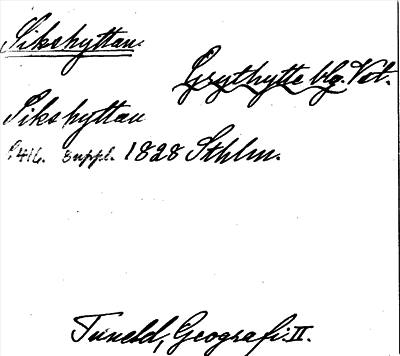 Sikshyttan.
Grythytte blg. Vstm.
Sikshyttan
s. 416. suppl. 1828 Sthlm.
Tuneld, Geografi. II.